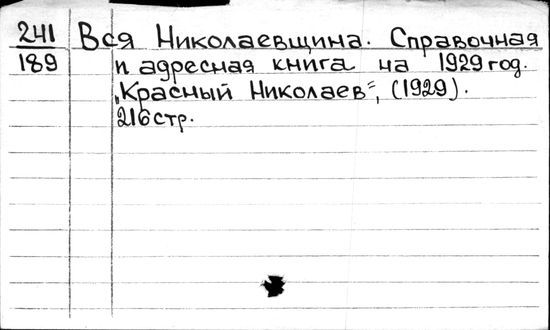 241 Вся Николаевщина. Справочная
189 и адресная книга на 1929 год.
„Красный Николаев", (1929).
216 стр.